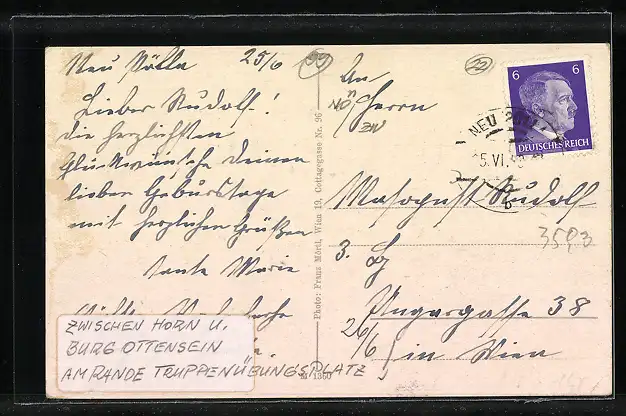 Neu Pölla 25/6
Lieber Rudolf!
die herzlichsten
Glückwünsche Deinem
lieben Geburtstage
mit herzlichen Grüßen
Tante Marie
ZWISCHEN HORN U.
BURG OTTENSEIN
AM RANDE TRUPPENÜBUNGSPLATZ
Photo: Franz Mörtl, Wien 19, Cottagegasse Nr. 96
22
An
Herrn
NÖ
Rudolf
3.
Ungargasse 38
in Wien
26/6
6 6
DEUTSCHES REICH
NEU
b